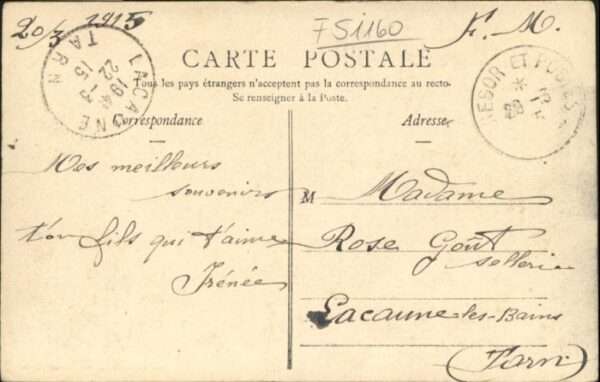 20/3 1915
FSI160
F. M.
CARTE POSTALE
Tous les pays étrangers n'acceptent pas la correspondance au recto-
Se renseigner à la Poste.
Correspondance
Adresse
LACAUNE
TARN
22-3
15
TRESOR ET POSTES
Mes meilleurs
souvenirs
t'on fils qui t'aime
Irénée
M Madame
Rose Goût
sellerie
Lacaune-les-Bains
(Tarn)